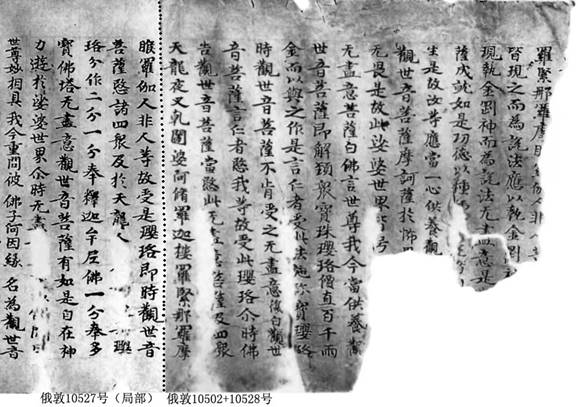 羅緊那羅摩睺 伽人非
皆現之而為說法應以執金剛
現執金剛神而為說法无盡意是
薩成就如是功德以種
生是故汝等應當一心供養觀
觀世音菩薩摩訶薩於怖
无畏是故此娑婆世界皆号
无盡意菩薩白佛言世尊我今當供養觀
世音菩薩即解頸眾寶珠瓔珞價直百千兩
金而以與之作是言仁者受此法施珎寶瓔珞
時觀世音菩薩不肯受之无盡意復白觀世
音菩薩言仁者愍我等故受此瓔珞尒時佛
告觀世音菩薩當愍此无盡意菩薩及四眾
天龍夜叉乹闥婆阿脩羅迦樓羅緊那羅摩
睺羅伽人非人等故受是瓔珞即時觀世音
菩薩愍諸四眾及於天龍人 瓔
珞分作二分一分奉釋迦牟尼佛一分奉多
寶佛塔无盡意觀世音菩薩有如是自在神
力遊於娑婆世界尒時无盡
世尊妙相具 我今重問彼 佛子何因緣 名為觀世音
俄敦10527号（局部） 俄敦10502+10528号